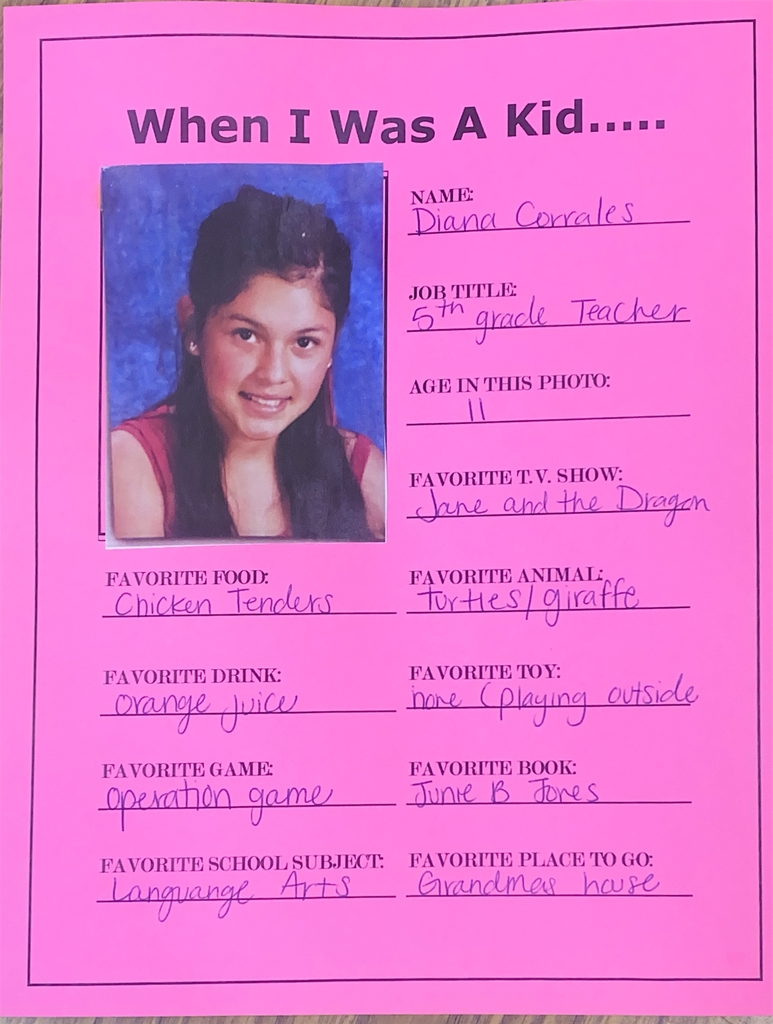 When I Was A Kid.....
NAME:
Diana Corrales
JOB TITLE:
5th grade Teacher
AGE IN THIS PHOTO:
11
FAVORITE T.V. SHOW:
Jane and the Dragon
FAVORITE FOOD:
Chicken Tenders
FAVORITE ANIMAL:
turtles/giraffe
FAVORITE DRINK:
orange juice
FAVORITE TOY:
none (playing outside
FAVORITE GAME:
operation game
FAVORITE BOOK:
Junie B Jones
FAVORITE SCHOOL SUBJECT:
Languange Arts
FAVORITE PLACE TO GO:
Grandmas house